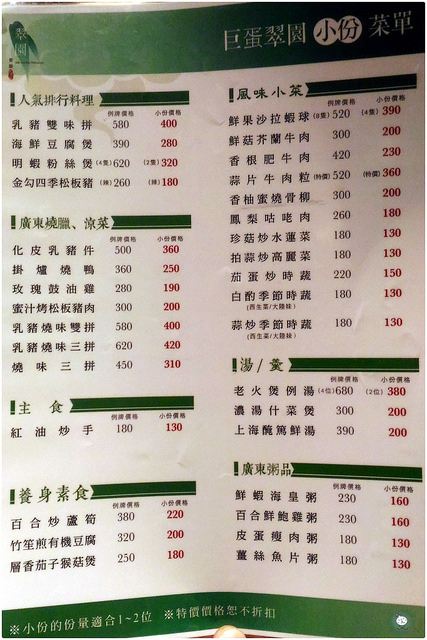 翠園
巨蛋翠園 小份 菜單
人氣排行料理
例牌價格 小份價格
乳豬雙味拼 580 400
海鮮豆腐煲 390 280
明蝦粉絲煲(4隻) 620 (2隻) 320
金勾四季松板豬(辣) 260 (辣) 180
廣東燒臘、涼菜
例牌價格 小份價格
化皮乳豬件 500 360
掛爐燒鴨 360 250
玫瑰鼓油雞 280 190
蜜汁烤松板豬肉 300 200
乳豬燒味雙拼 580 400
乳豬燒味三拼 620 420
燒味三拼 450 310
主食
例牌價格 小份價格
紅油炒手 180 130
養身素食
例牌價格 小份價格
百合炒蘆筍 380 220
竹笙煎有機豆腐 320 200
層香茄子猴菇煲 250 180
風味小菜
例牌價格 小份價格
鮮果沙拉蝦球(8隻) 520 (4隻) 390
鮮菇芥蘭牛肉 300 200
香根肥牛肉 420 230
蒜片牛肉粒(特價) 520 (特價) 360
香柚蜜燒骨柳 300 200
鳳梨咕咾肉 260 180
珍菇炒水蓮菜 180 130
拍蒜炒高麗菜 180 130
茄蛋炒時蔬 220 150
白酌季節時蔬 180 130
(西生菜/大陸妹)
蒜炒季節時蔬 180 130
(西生菜/大陸妹)
湯/羹
例牌價格 小份價格
老火煲例湯(4位) 680 (2位) 380
濃湯什菜煲 300 200
上海醃篤鮮湯 390 200
廣東粥品
例牌價格 小份價格
鮮蝦海皇粥 230 160
百合鮮鮑雞粥 230 160
皮蛋瘦肉粥 180 130
薑絲魚片粥 180 130
※小份的份量適合1~2位 ※特價價格恕不折扣